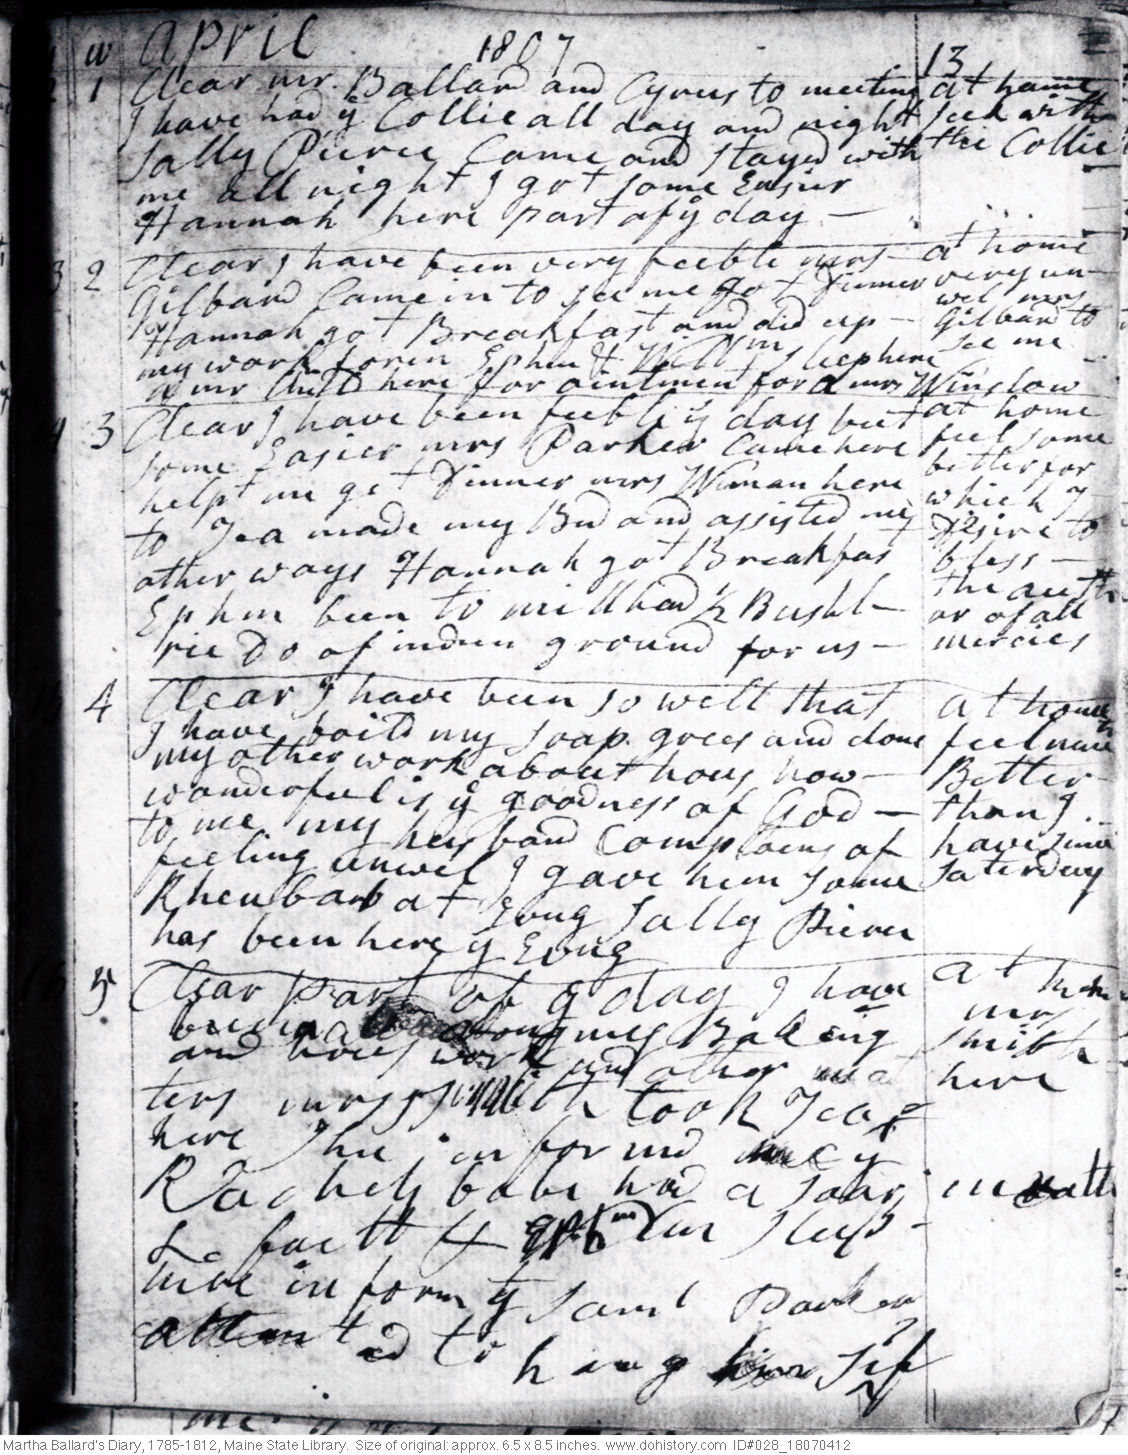 w April 1807 13
2 1 Clear mr. Ballard and Cyrus to meeting at hame
I have had ÿ Collic all day and night seek with
Sally Pierce Came and stayd with the Collic
me all night I got some Easier
Hannah here part of ÿ day —
3 2 Clear I have been very feeble mrs — at home
Gilbard Came in to see me got Dinner very un-
wel mrs
Hannah got Breakfast and did up — Gilbard to
my work for in Ephm & Willm sleep here see me
a mr Child here for ointment for a mrs Winslow
4 3 Clear I have been feeble ÿ day but at home
some Easier mrs Parker Came here feel some
help me get Dinner mrs Wiman here better for
to Tea made my Bed and assisted me which I
Desire to
other ways Hannah got Breakfas bless —
Ephm been to mill had ½ Bushl — the auth
or of all
rie Do of indien ground for us — mercies
4 Clear I have been so well that at home
I have boild my soap grees and done feel mure
my other work about hous how — Better
wonderful is ÿ goodness of God — than I
to me my husband Complaens of have sinc
feeling unwel I gave him some Saterday
Rheubarb at Evng Sally Pierce
has been here ÿ Evng
5 Clear part of ÿ day I have at home
been Bakeng mrs
and hous work and other mat Smith
ters mrs Smith took Tea here
here Shee informd me ÿ
Rachels babe had a
& fuett & Sleep
here inform ÿ Saml Parker
attemt ed to hang him Self
17
Martha Ballard's Diary, 1785-1812, Maine State Library. Size of original: approx. 6.5 x 8.5 inches. www.dohistory.com ID#028_18070412